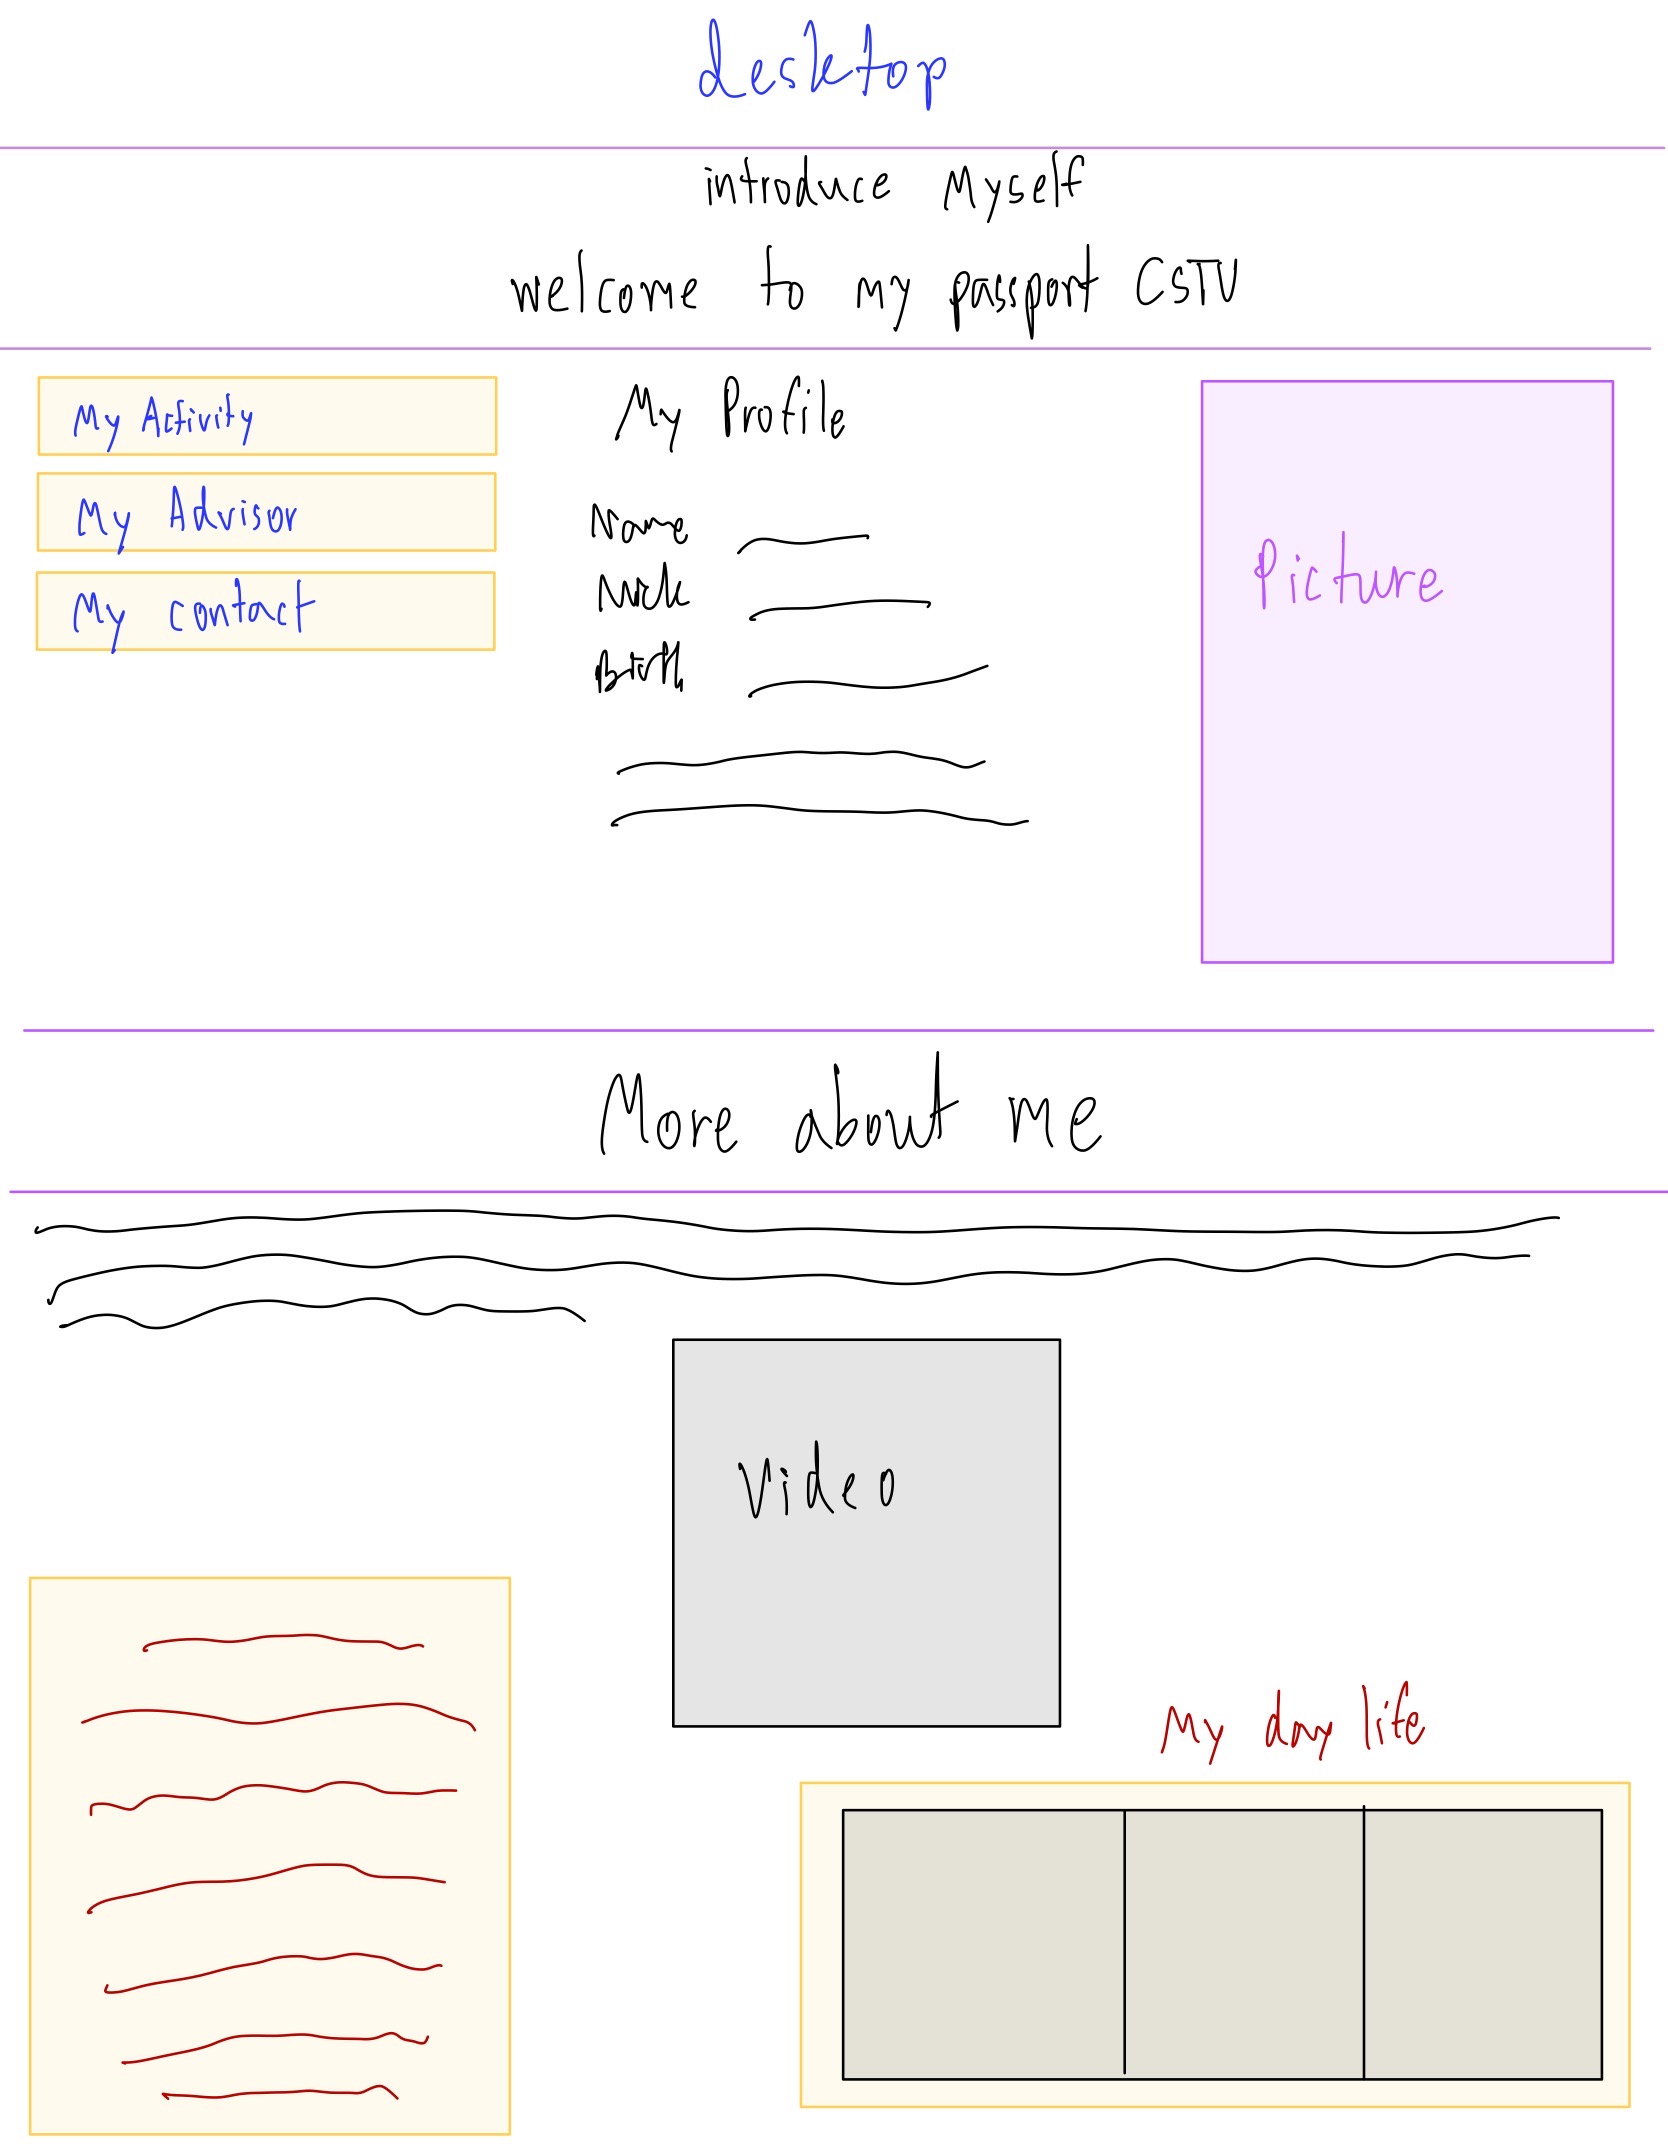 desktop
introduce Myself
welcome to my passport CSTU
My Activity
My Advisor
My contact
My Profile
Name
Nick
Birth
Picture
More about me
Video
My day life